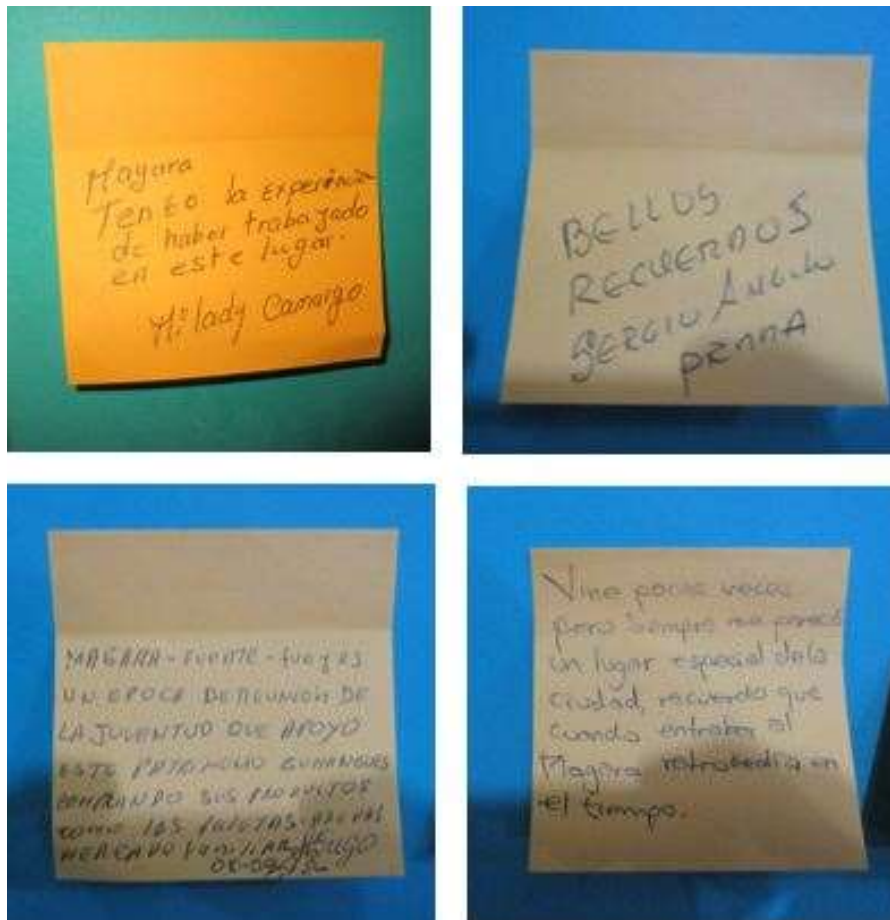 Magara
Tengo la experiencia
de haber trabajado
en este lugar.
Milady Camargo
BELLOS
RECUERDOS
SERGIO ANGULO
MAGARA - FUENTE - FUE y ES
UN EPOCA DE REUNION DE
LA JUVENTUD QUE APOYO
ESTE PATRIMONIO BUMANGUES
COMPRANDO SUS PRODUCTOS
COMO LAS PALETAS
MERCADO FAMILIAR HUGO
Vine pocas veces
pero siempre me pareció
un lugar especial de la
ciudad, recuerdo que
cuando entraba al
Magara retrocedía en
el tiempo.